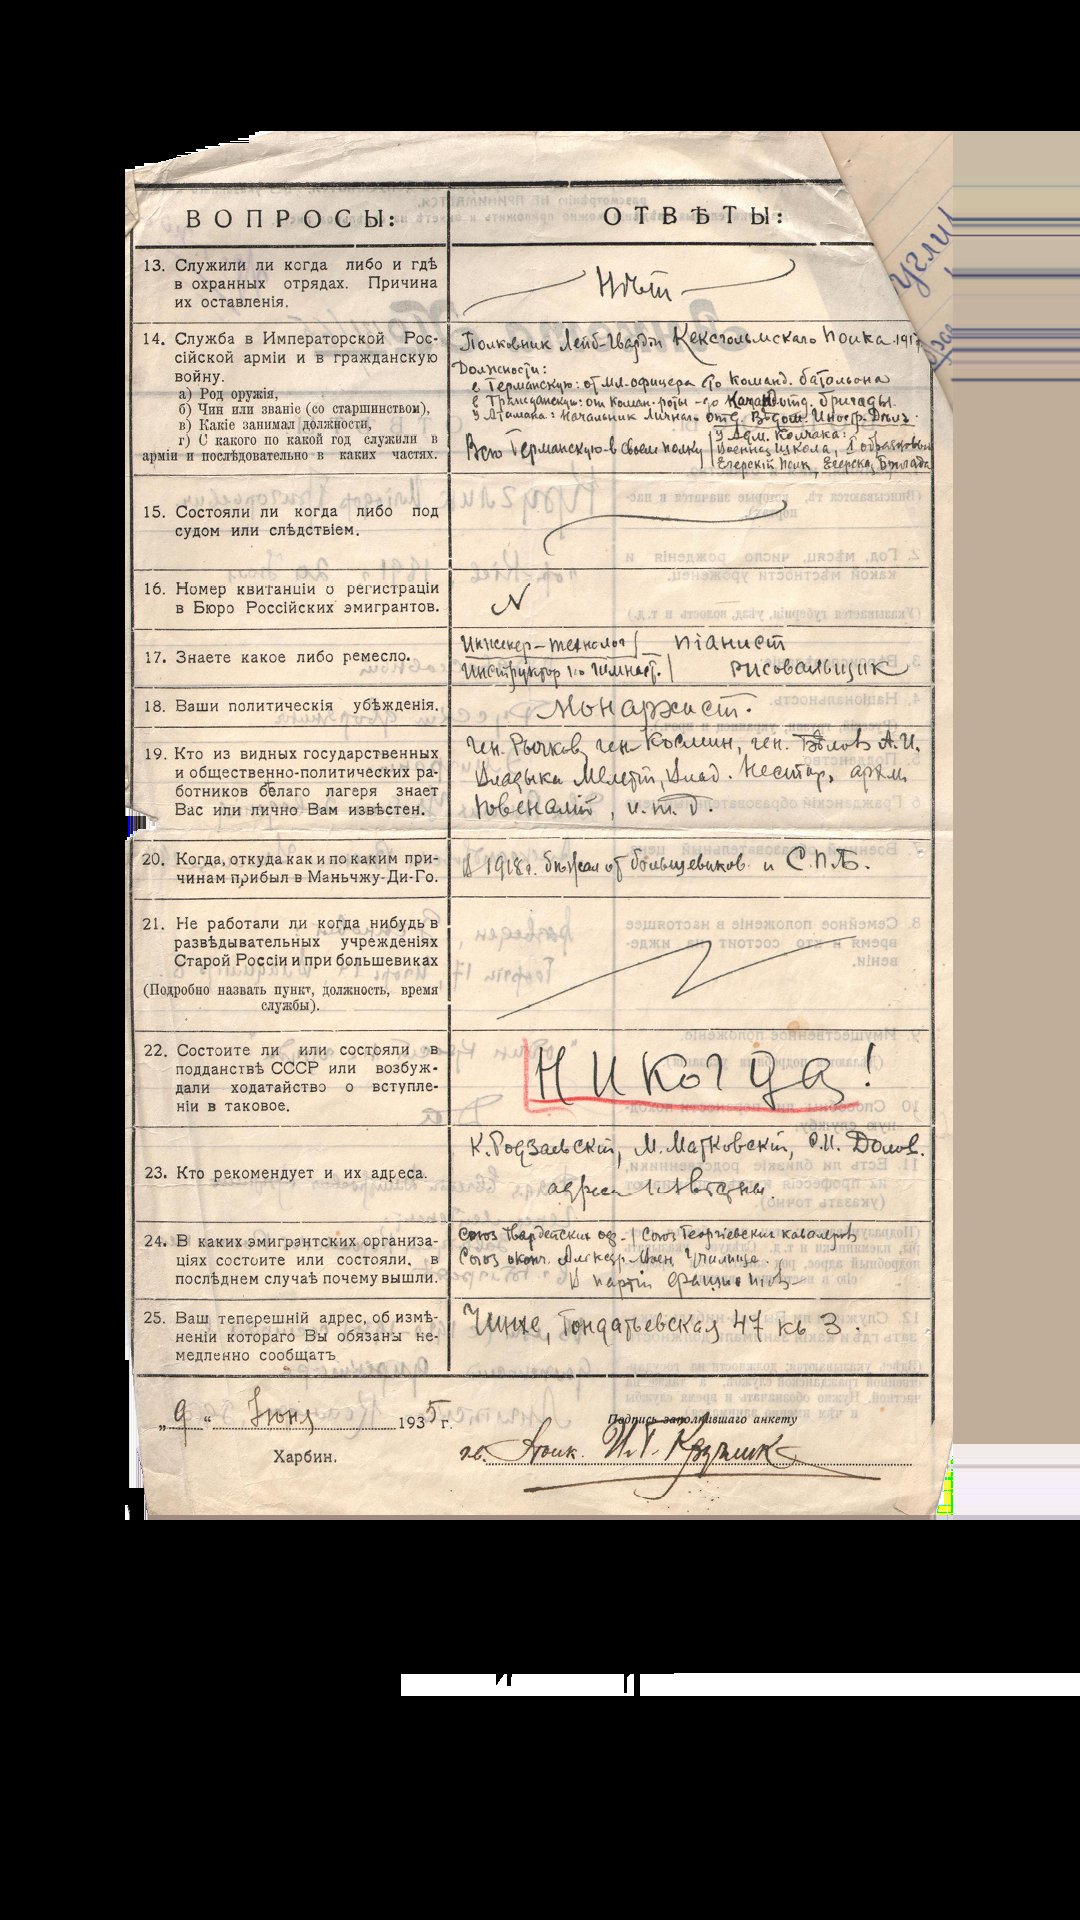 ВОПРОСЫ:
ОТВѢТЫ:
13. Служили ли когда либо и гдѣ
в охранных отрядах. Причина
их оставленія.
Нѣт
14. Служба в Императорской Рос-
сійской арміи и в гражданскую
войну.
а) Род оружія,
б) Чин или званіе (со старшинством),
в) Какіе занимал должности,
г) С какого по какой год служили в
арміи и послѣдовательно в каких частях.
Полковник Лейб-Гвардіи Кексгольмскаго Полка 1917
Должности:
в Германскую: от Мл. офицера до Команд. батальона
в Гражданскую: от Коман. роты - до Команд. отд. бригады.
У Атамана: Начальник Личнаго отд. Вѣдом. Иностр. Дѣл.
Всю Германскую - в своем полку
У Адм. Колчака:
Военная школа, 1 образцовый
Егерскій Полк, Егерская Бригада
15. Состояли ли когда либо под
судом или слѣдствіем.
16. Номер квитанціи о регистраціи
в Бюро Россійских эмигрантов.
N
17. Знаете какое либо ремесло.
Инженер-технолог | піанист
Инструктор по гимнаст. | рисовальщик
18. Ваши политическія убѣжденія.
Монархист.
19. Кто из видных государственных
и общественно-политических ра-
ботников бѣлаго лагеря знает
Вас или лично Вам извѣстен.
ген. Рычков, ген. Космин, ген. Бѣлов А.И.
Владыка Мелетій, Влад. Нестор, архим.
Ювеналій, и.т.д.
20. Когда, откуда как и по каким при-
чинам прибыл в Маньчжу-Ди-Го.
В 1918г. бѣжал от большевиков и С.П.Б.
21. Не работали ли когда нибудь в
развѣдывательных учрежденіях
Старой Россіи и при большевиках
(Подробно назвать пункт, должность, время
службы).
22. Состоите ли или состояли в
подданствѣ СССР или возбуж-
дали ходатайство о вступле-
ніи в таковое.
Никогда!
23. Кто рекомендует и их адреса.
К. Родзаевскій, М. Матковскій, Долов.
адреса извѣстны.
24. В каких эмигрантских организа-
ціях состоите или состояли, в
послѣднем случаѣ почему вышли.
Союз Гвардейских оф. | Союз Георгіевских кавалеров
Союз оконч. Александр. Воен. Училище.
В партіи фашистов
25. Ваш теперешній адрес, об измѣ-
неніи котораго Вы обязаны не-
медленно сообщать
Цинхе, Гондатьевская 47 кв 3.
„9“ Іюня 1935 г.
Подпись заполнившаго анкету
Харбин.
гв. Полк. И.Г. Круглик